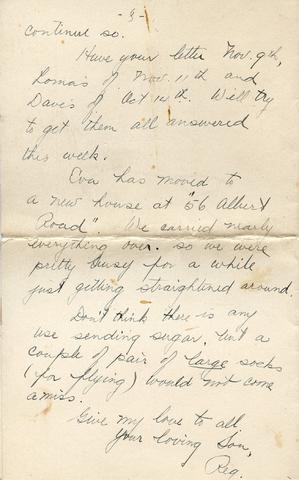 - 3 -
continue so.
Have your letter Nov. 9th,
Lorna's of Nov. 11th and
Dave's of Oct 14th. Will try
to get them all answered
this week.
Eva has moved to
a new house at "56 Albert
Road". We carried nearly
everything over. so we were
pretty busy for a while
just getting straightened around.
Don't think there is any
use sending sugar, but a
couple of pair of large socks
(for flying) would not come
amiss.
Give my love to all
your loving Son,
Reg.